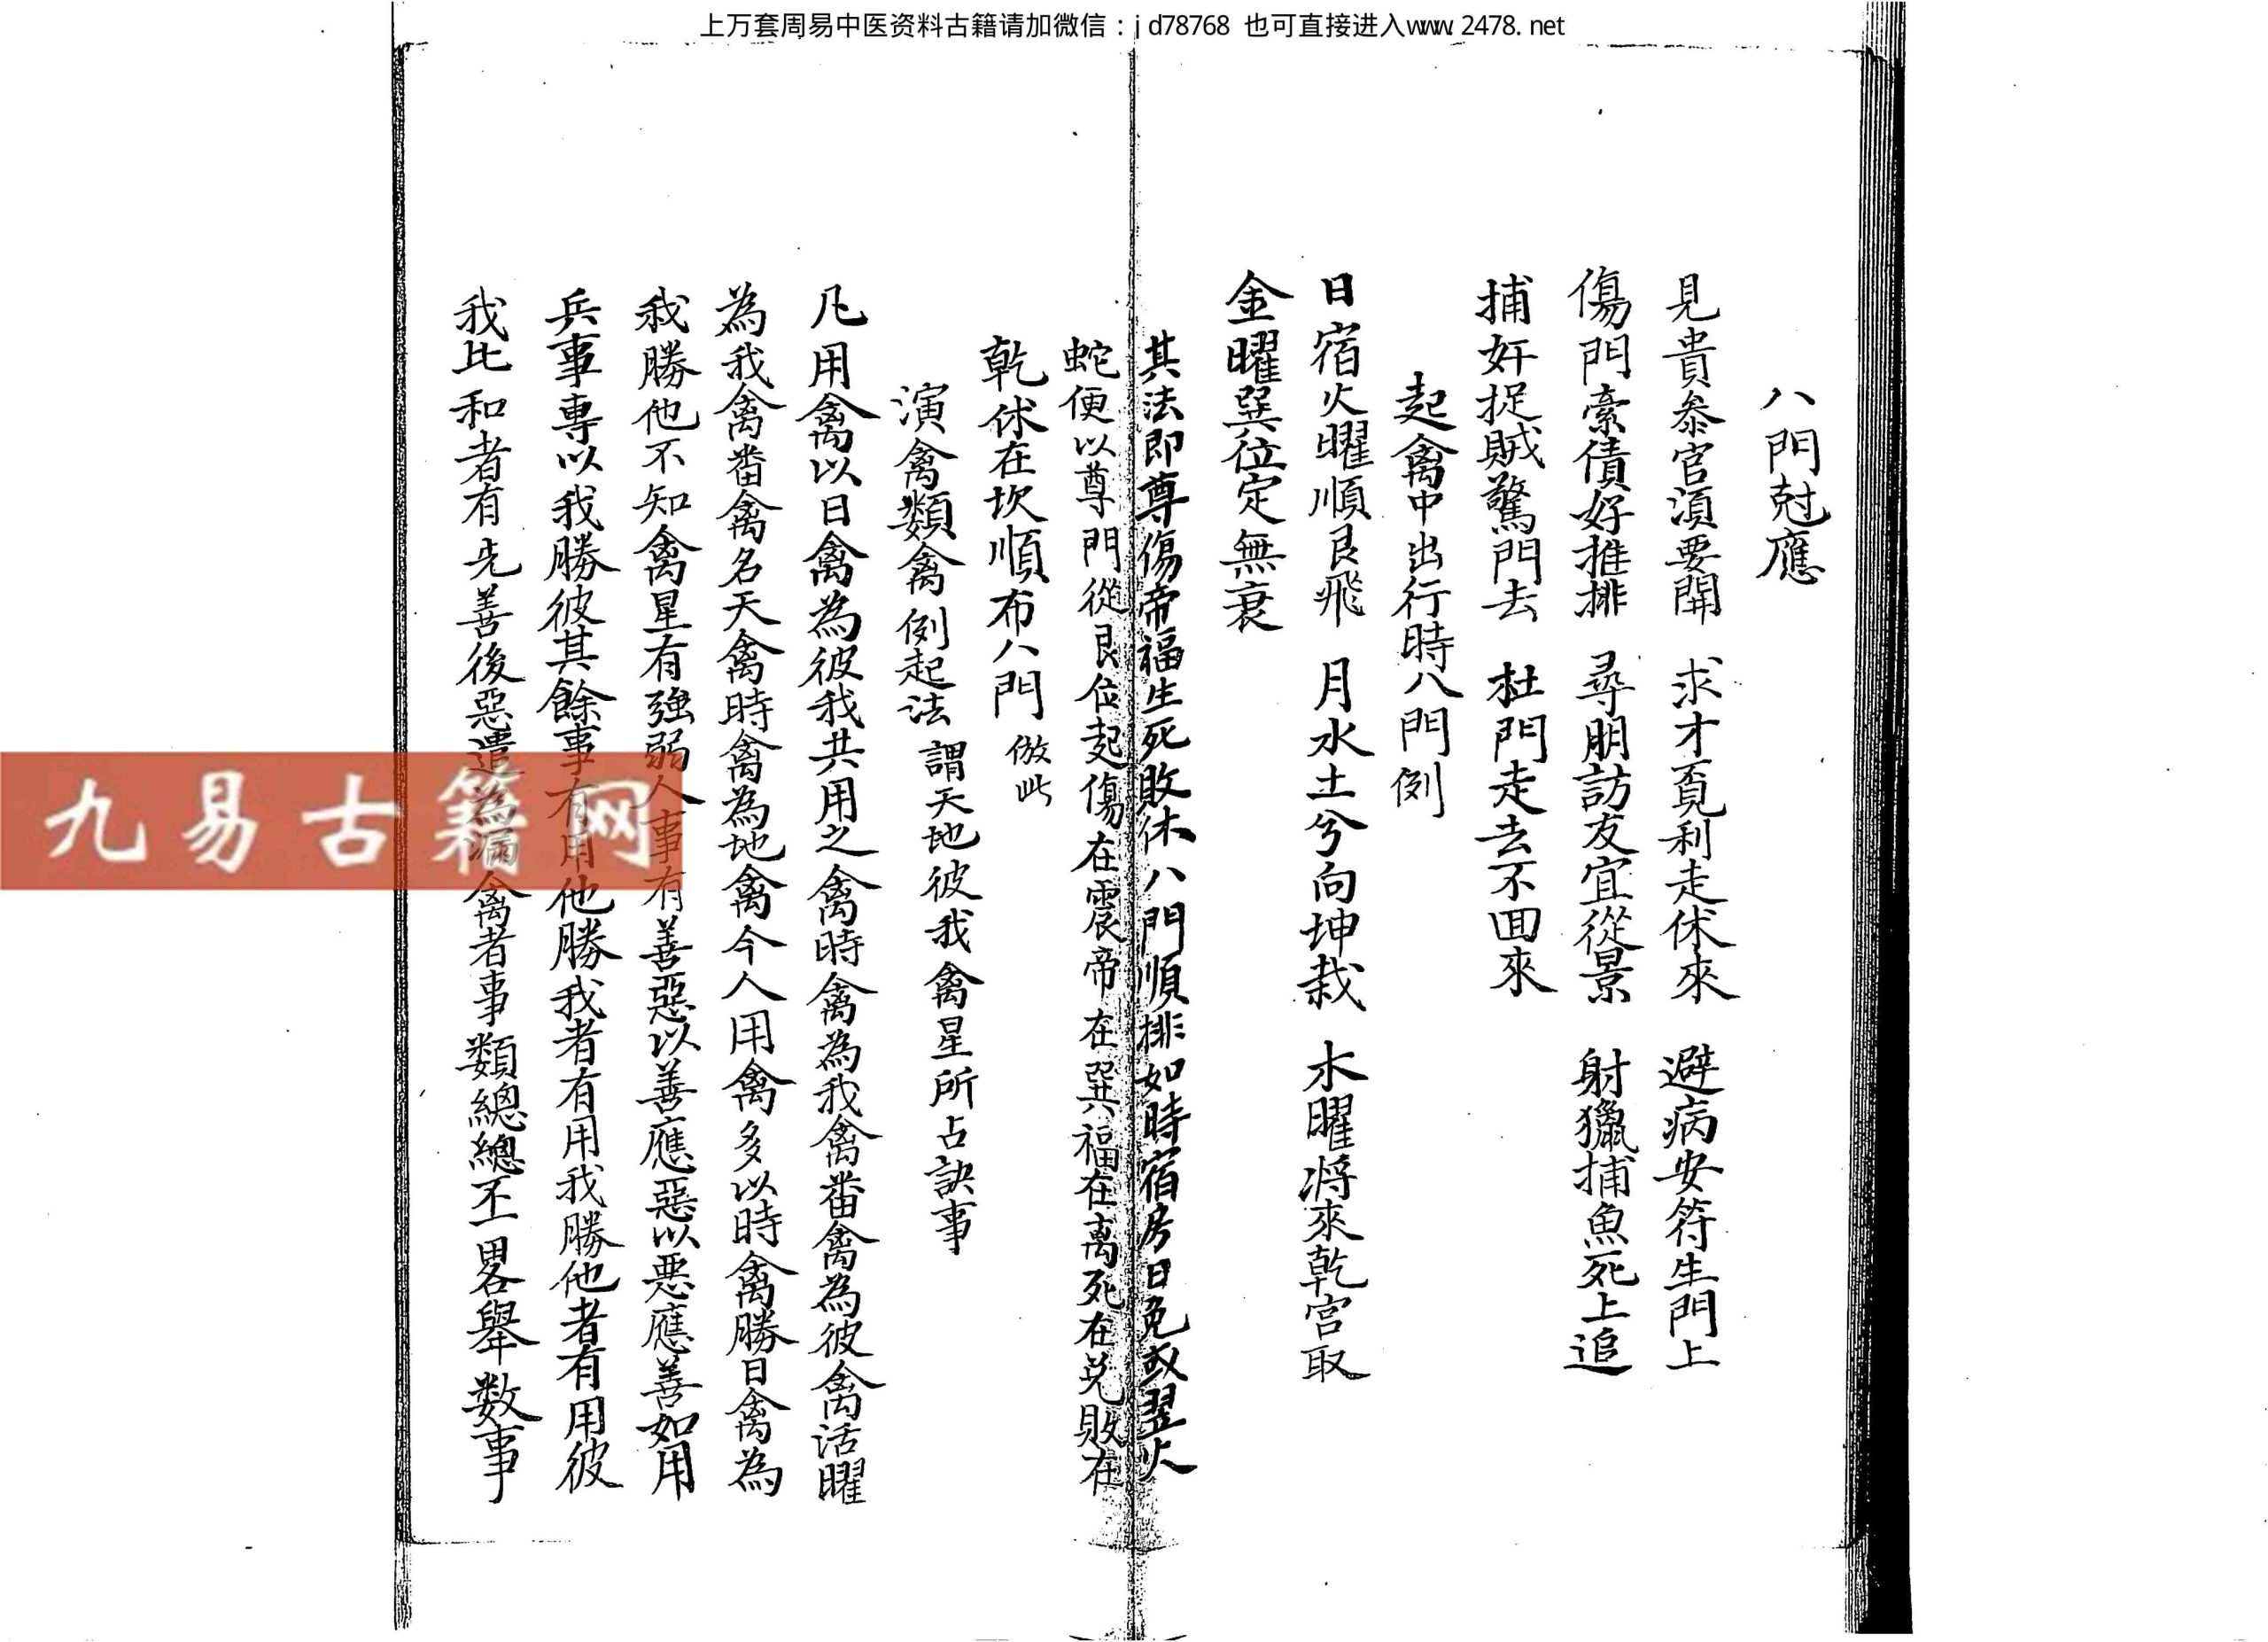 上万套周易中医资料古籍请加微信：jd78768 也可直接进入www.2478.net
八門尅應
見貴叅官須要開 求才覓利走休來 避病安符生門上
傷門索債好推排 尋朋訪友宜從景 射獵捕魚死上追
捕奸捉賊驚門去 杜門走去不回來
起禽中出行時八門例
日宿火曜順艮飛 月水土兮向坤栽 木曜將來乾宮取
金曜巽位定無衰
其法即尊傷帝福生死敗休八門順排如時宿房日兔或翌火
蛇便以尊門從艮位起傷在震帝在巽福在离死在兑敗在
乾休在坎順布八門 倣此
演禽類禽例起法 謂天地彼我禽星所占訣事
凡用禽以日禽為彼我共用之禽時禽為我禽番禽為彼禽活曜
為我禽番禽名天禽時禽為地禽今人用禽多以時禽勝日禽為
我勝他不知禽星有強弱人事有善惡以善應惡以惡應善如用
兵事專以我勝彼其餘事有用他勝我者有用我勝他者有用彼
我比和者有先善後惡遣為 禽者事類總總不一畧舉数事
九易古籍网